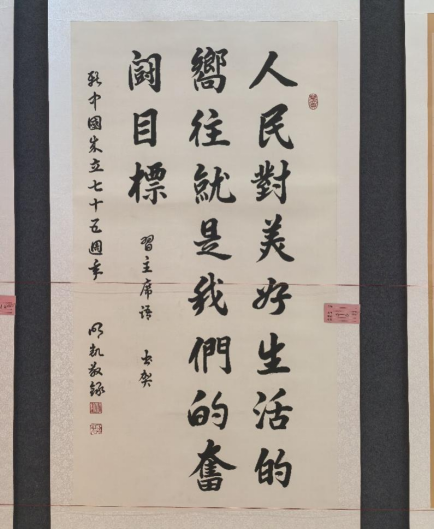 人民對美好生活的
嚮往就是我們的奮
鬪目標
習主席語 書賀
新中國成立七十五週年
明凱敬錄